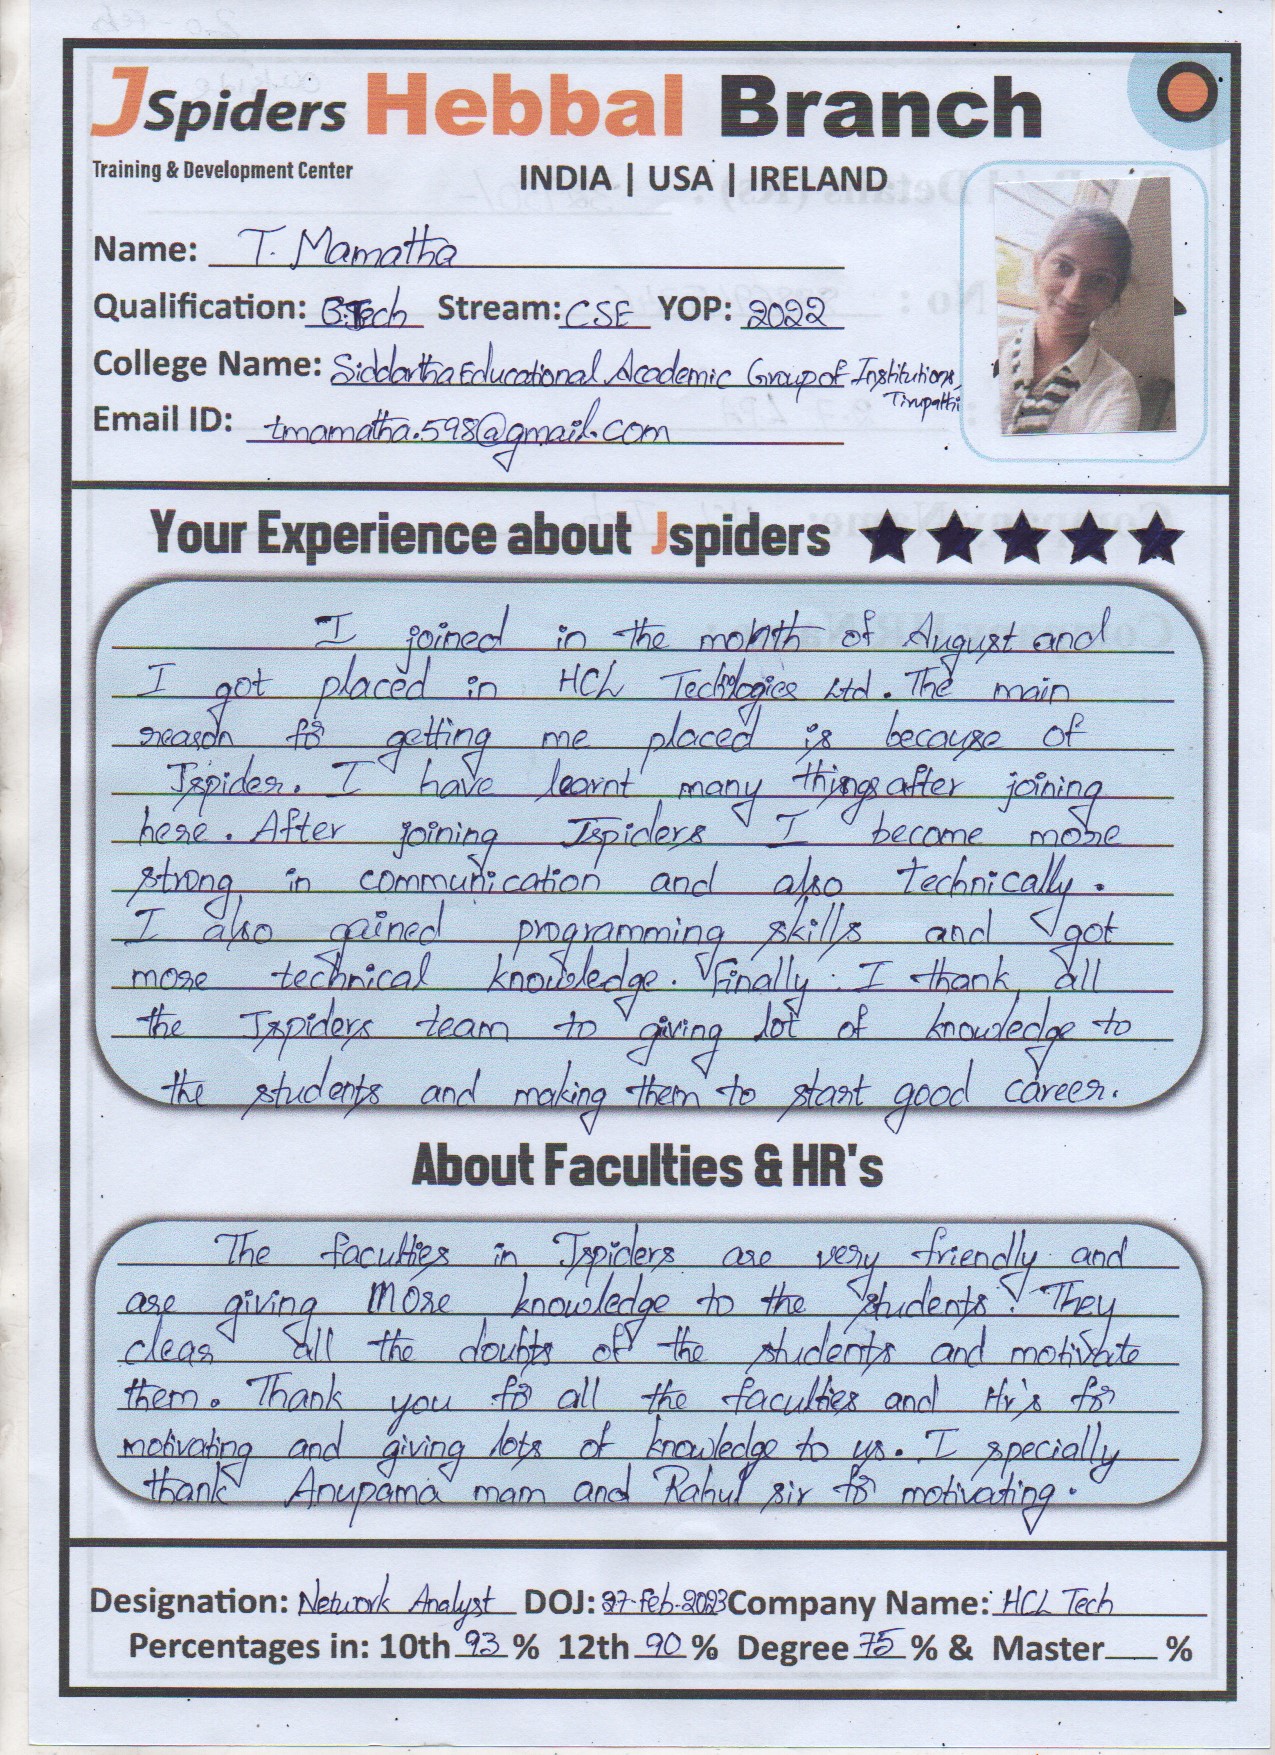 JSpiders Hebbal Branch
Training & Development Center
INDIA | USA | IRELAND
Name: T. Mamatha
Qualification: B.Tech Stream: CSE YOP: 2022
College Name: Siddartha Educational Academic Group of Institutions,
Tirupathi
Email ID: tmamatha.598@gmail.com
Your Experience about Jspiders
I joined in the month of August and
I got placed in HCL Technologies Ltd. The main
reason for getting me placed is because of
Jspider. I have learnt many things after joining
here. After joining Jspiders I become more
strong in communication and also technically.
I also gained programming skills and got
more technical knowledge. Finally I thank all
the Jspiders team to giving lot of knowledge to
the students and making them to start good career.
About Faculties & HR's
The faculties in Jspiders are very friendly and
are giving more knowledge to the students. They
clear all the doubts of the students and motivate
them. Thank you for all the faculties and Hr's for
motivating and giving lots of knowledge to us. I specially
thank Anupama mam and Rahul sir for motivating.
Designation: Network Analyst DOJ: 27-Feb-2023 Company Name: HCL Tech
Percentages in: 10th 93 % 12th 90 % Degree 75 % & Master %